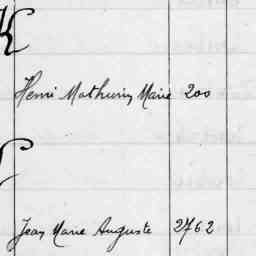 K
Henri Mathurin Marie 200
Jean Marie Auguste 2762